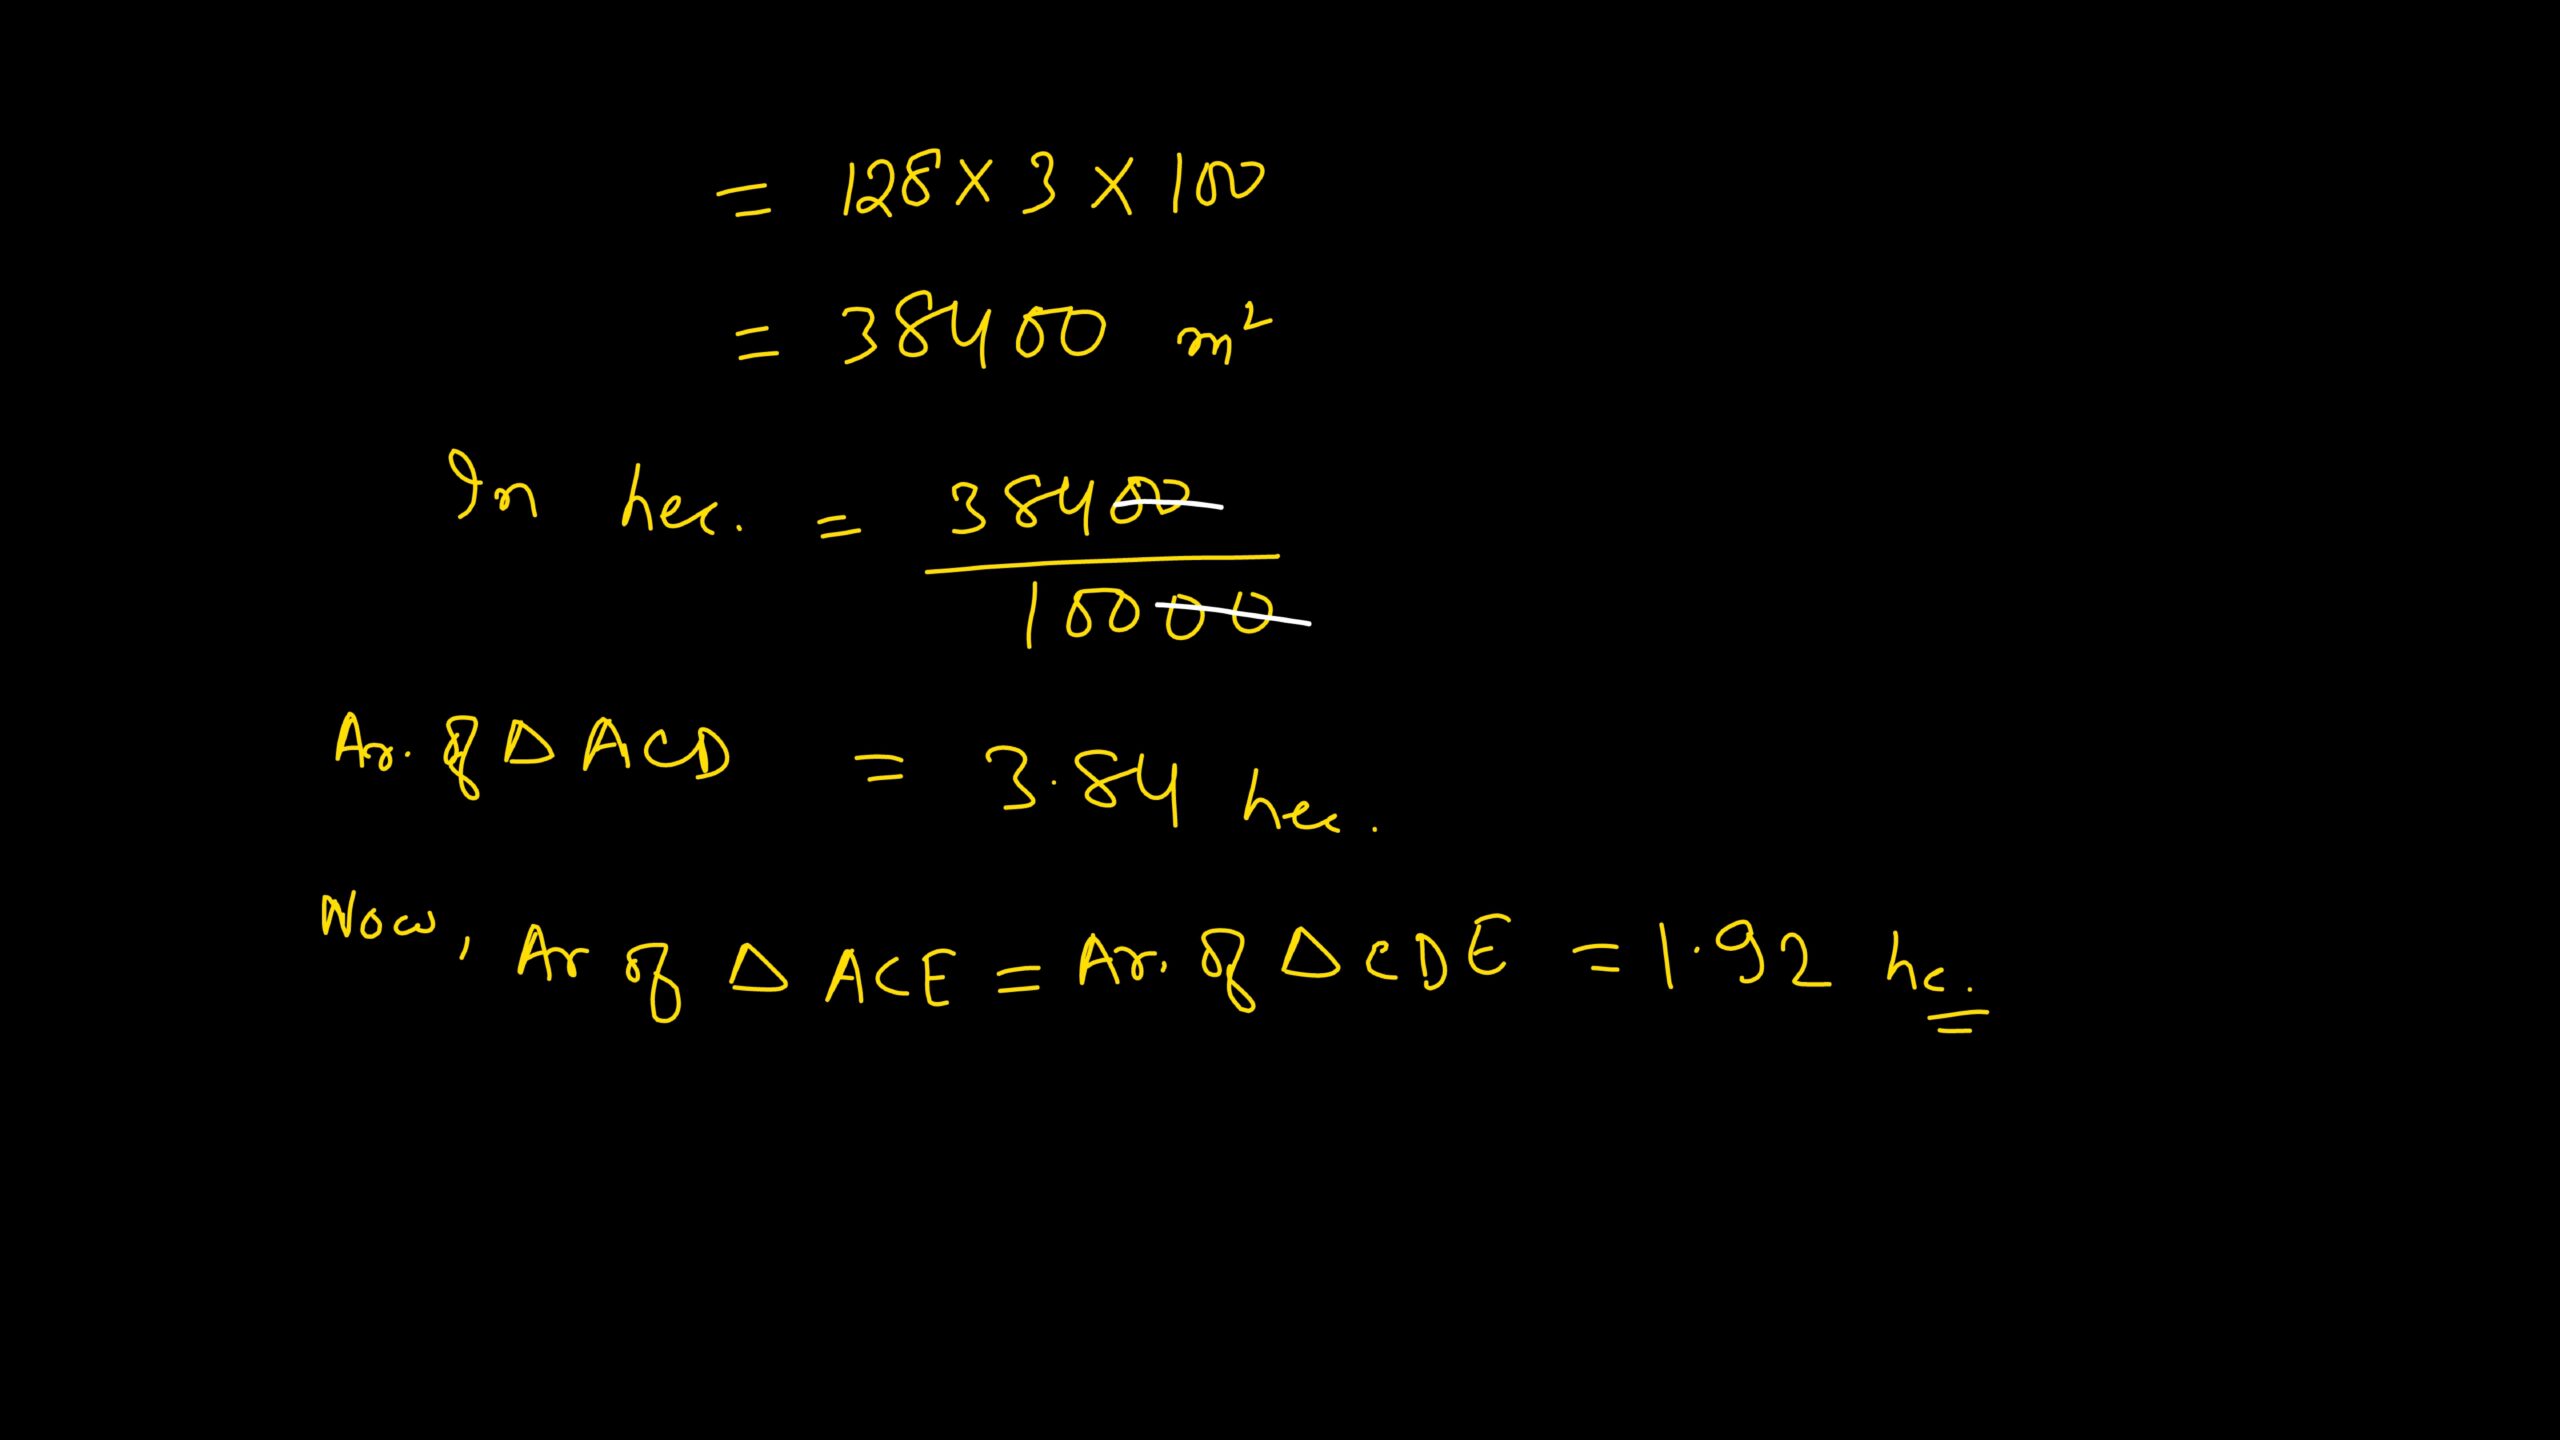 = 128 × 3 × 100
= 38400 m²
In hec. = 38400
10000
Ar. of Δ ACD = 3.84 hec.
Now, Ar of Δ ACE = Ar. of Δ CDE = 1.92 hc.